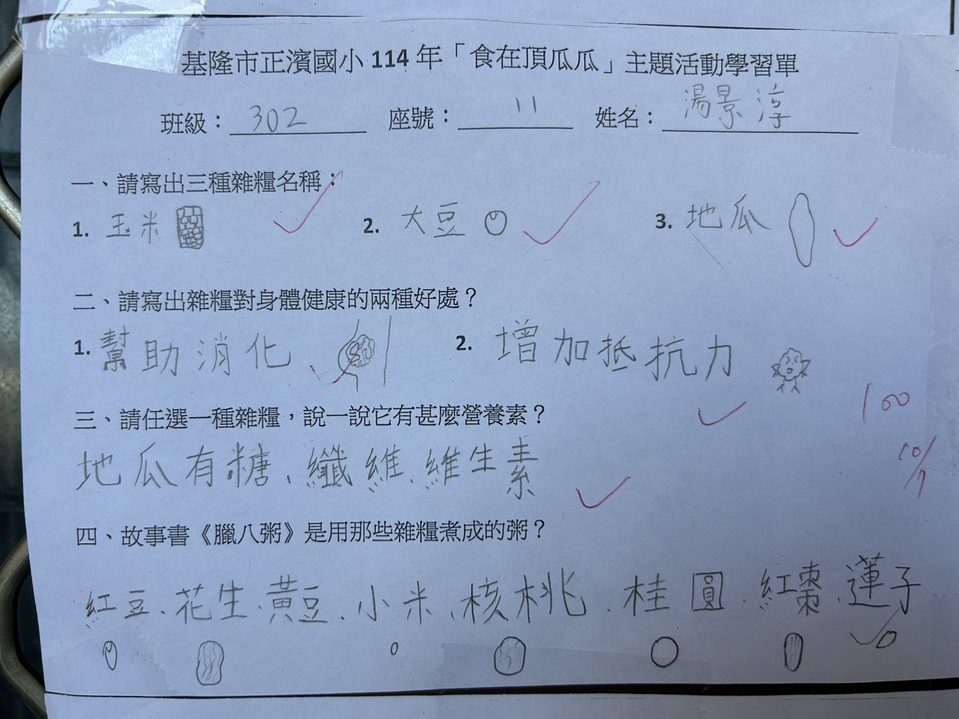 基隆市正濱國小 114 年「食在頂瓜瓜」主題活動學習單
班級：302 座號：11 姓名：湯景淳
一、請寫出三種雜糧名稱：
1. 玉米 2. 大豆 3. 地瓜
二、請寫出雜糧對身體健康的兩種好處？
1. 幫助消化 2. 增加抵抗力
100
三、請任選一種雜糧，說一說它有甚麼營養素？
10/7
地瓜有糖、纖維、維生素
四、故事書《臘八粥》是用那些雜糧煮成的粥？
紅豆、花生、黃豆、小米、核桃、桂圓、紅棗、蓮子